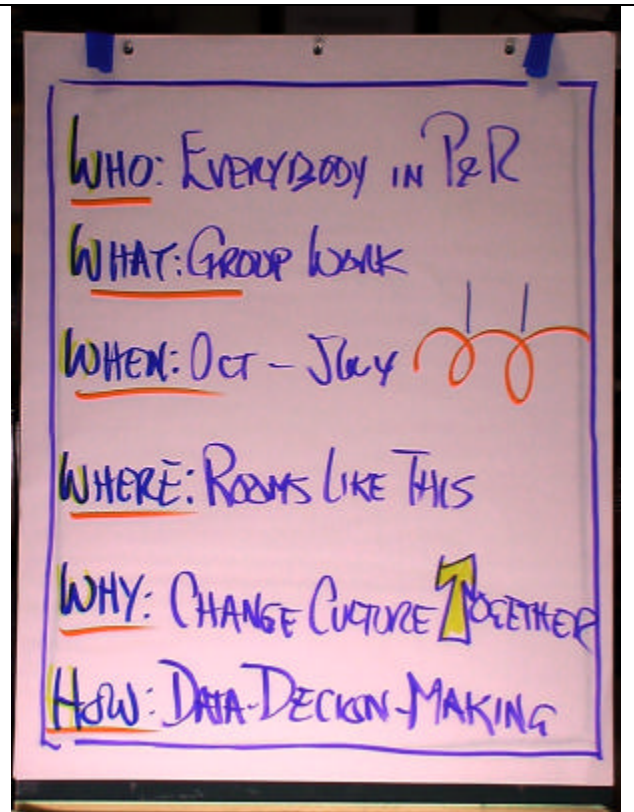 WHO: EVERYBODY IN P&R
WHAT: GROUP WORK
WHEN: OCT - JULY
WHERE: ROOMS LIKE THIS
WHY: CHANGE CULTURE TOGETHER
HOW: DATA-DECISON-MAKING